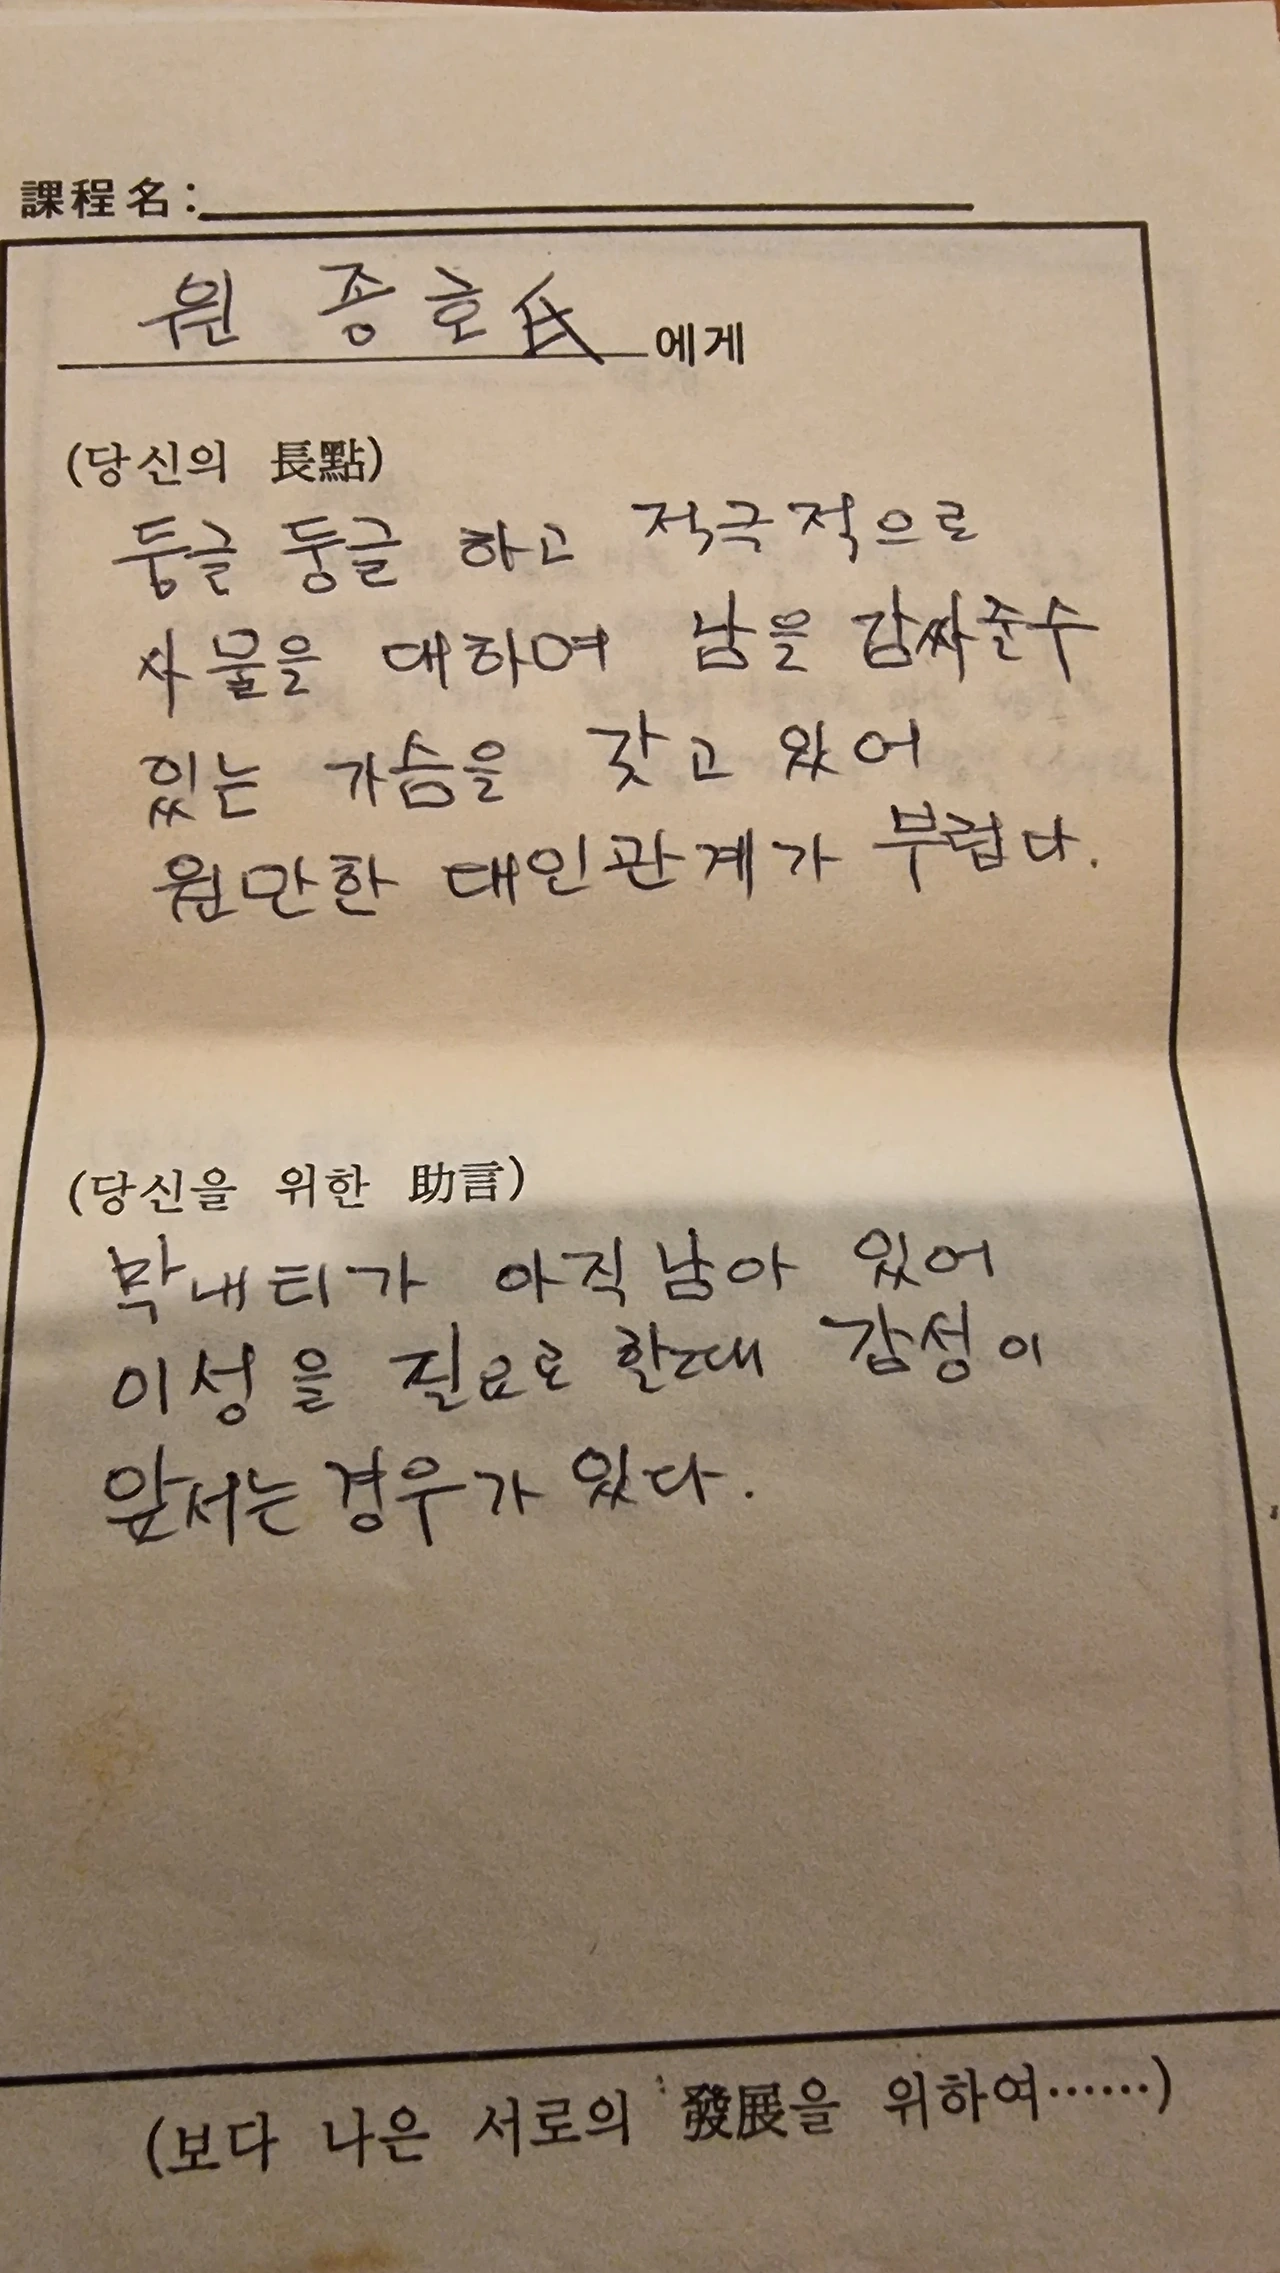 課程名:
원 종호氏 에게
(당신의 長點)
둥글 둥글 하고 적극적으로
사물을 대하여 남을 감싸준수
있는 가슴을 갖고 있어
원만한 대인관계가 부럽다.
(당신을 위한 助言)
막내티가 아직 남아 있어
이성을 필요로 한때 감성이
앞서는 경우가 있다.
(보다 나은 서로의 發展을 위하여……)